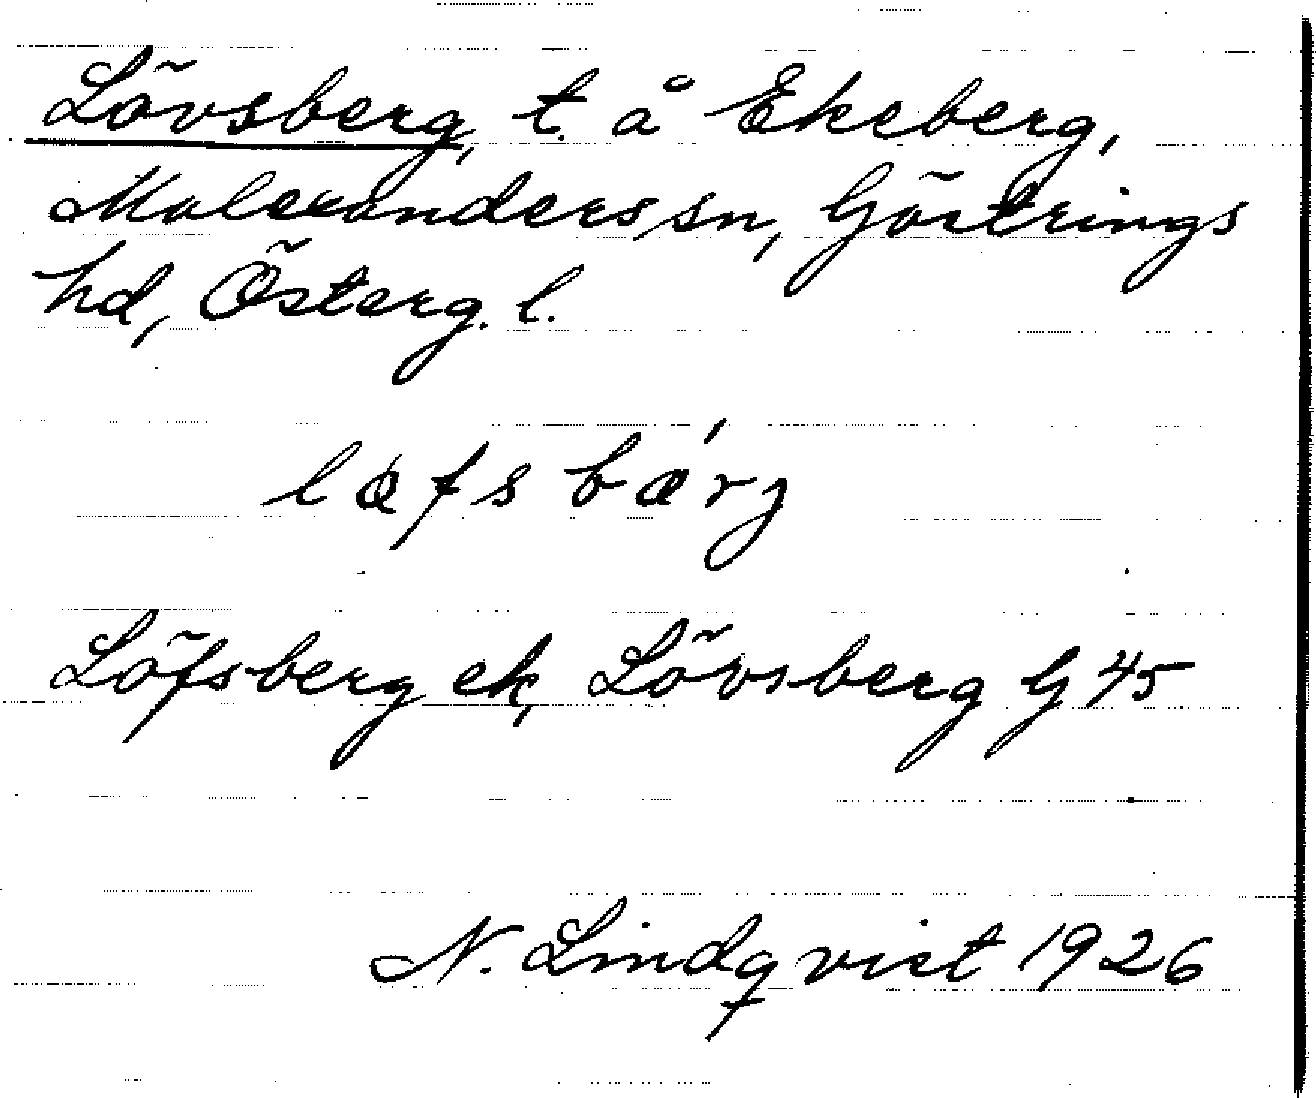 Lövsberg, t. å Ekeberg,
Malexanders sn, Göstrings
hd, Österg. l.
lɵfsbæ´rj
Löfsberg ek, Lövsberg G 45
N. Lindqvist 1926